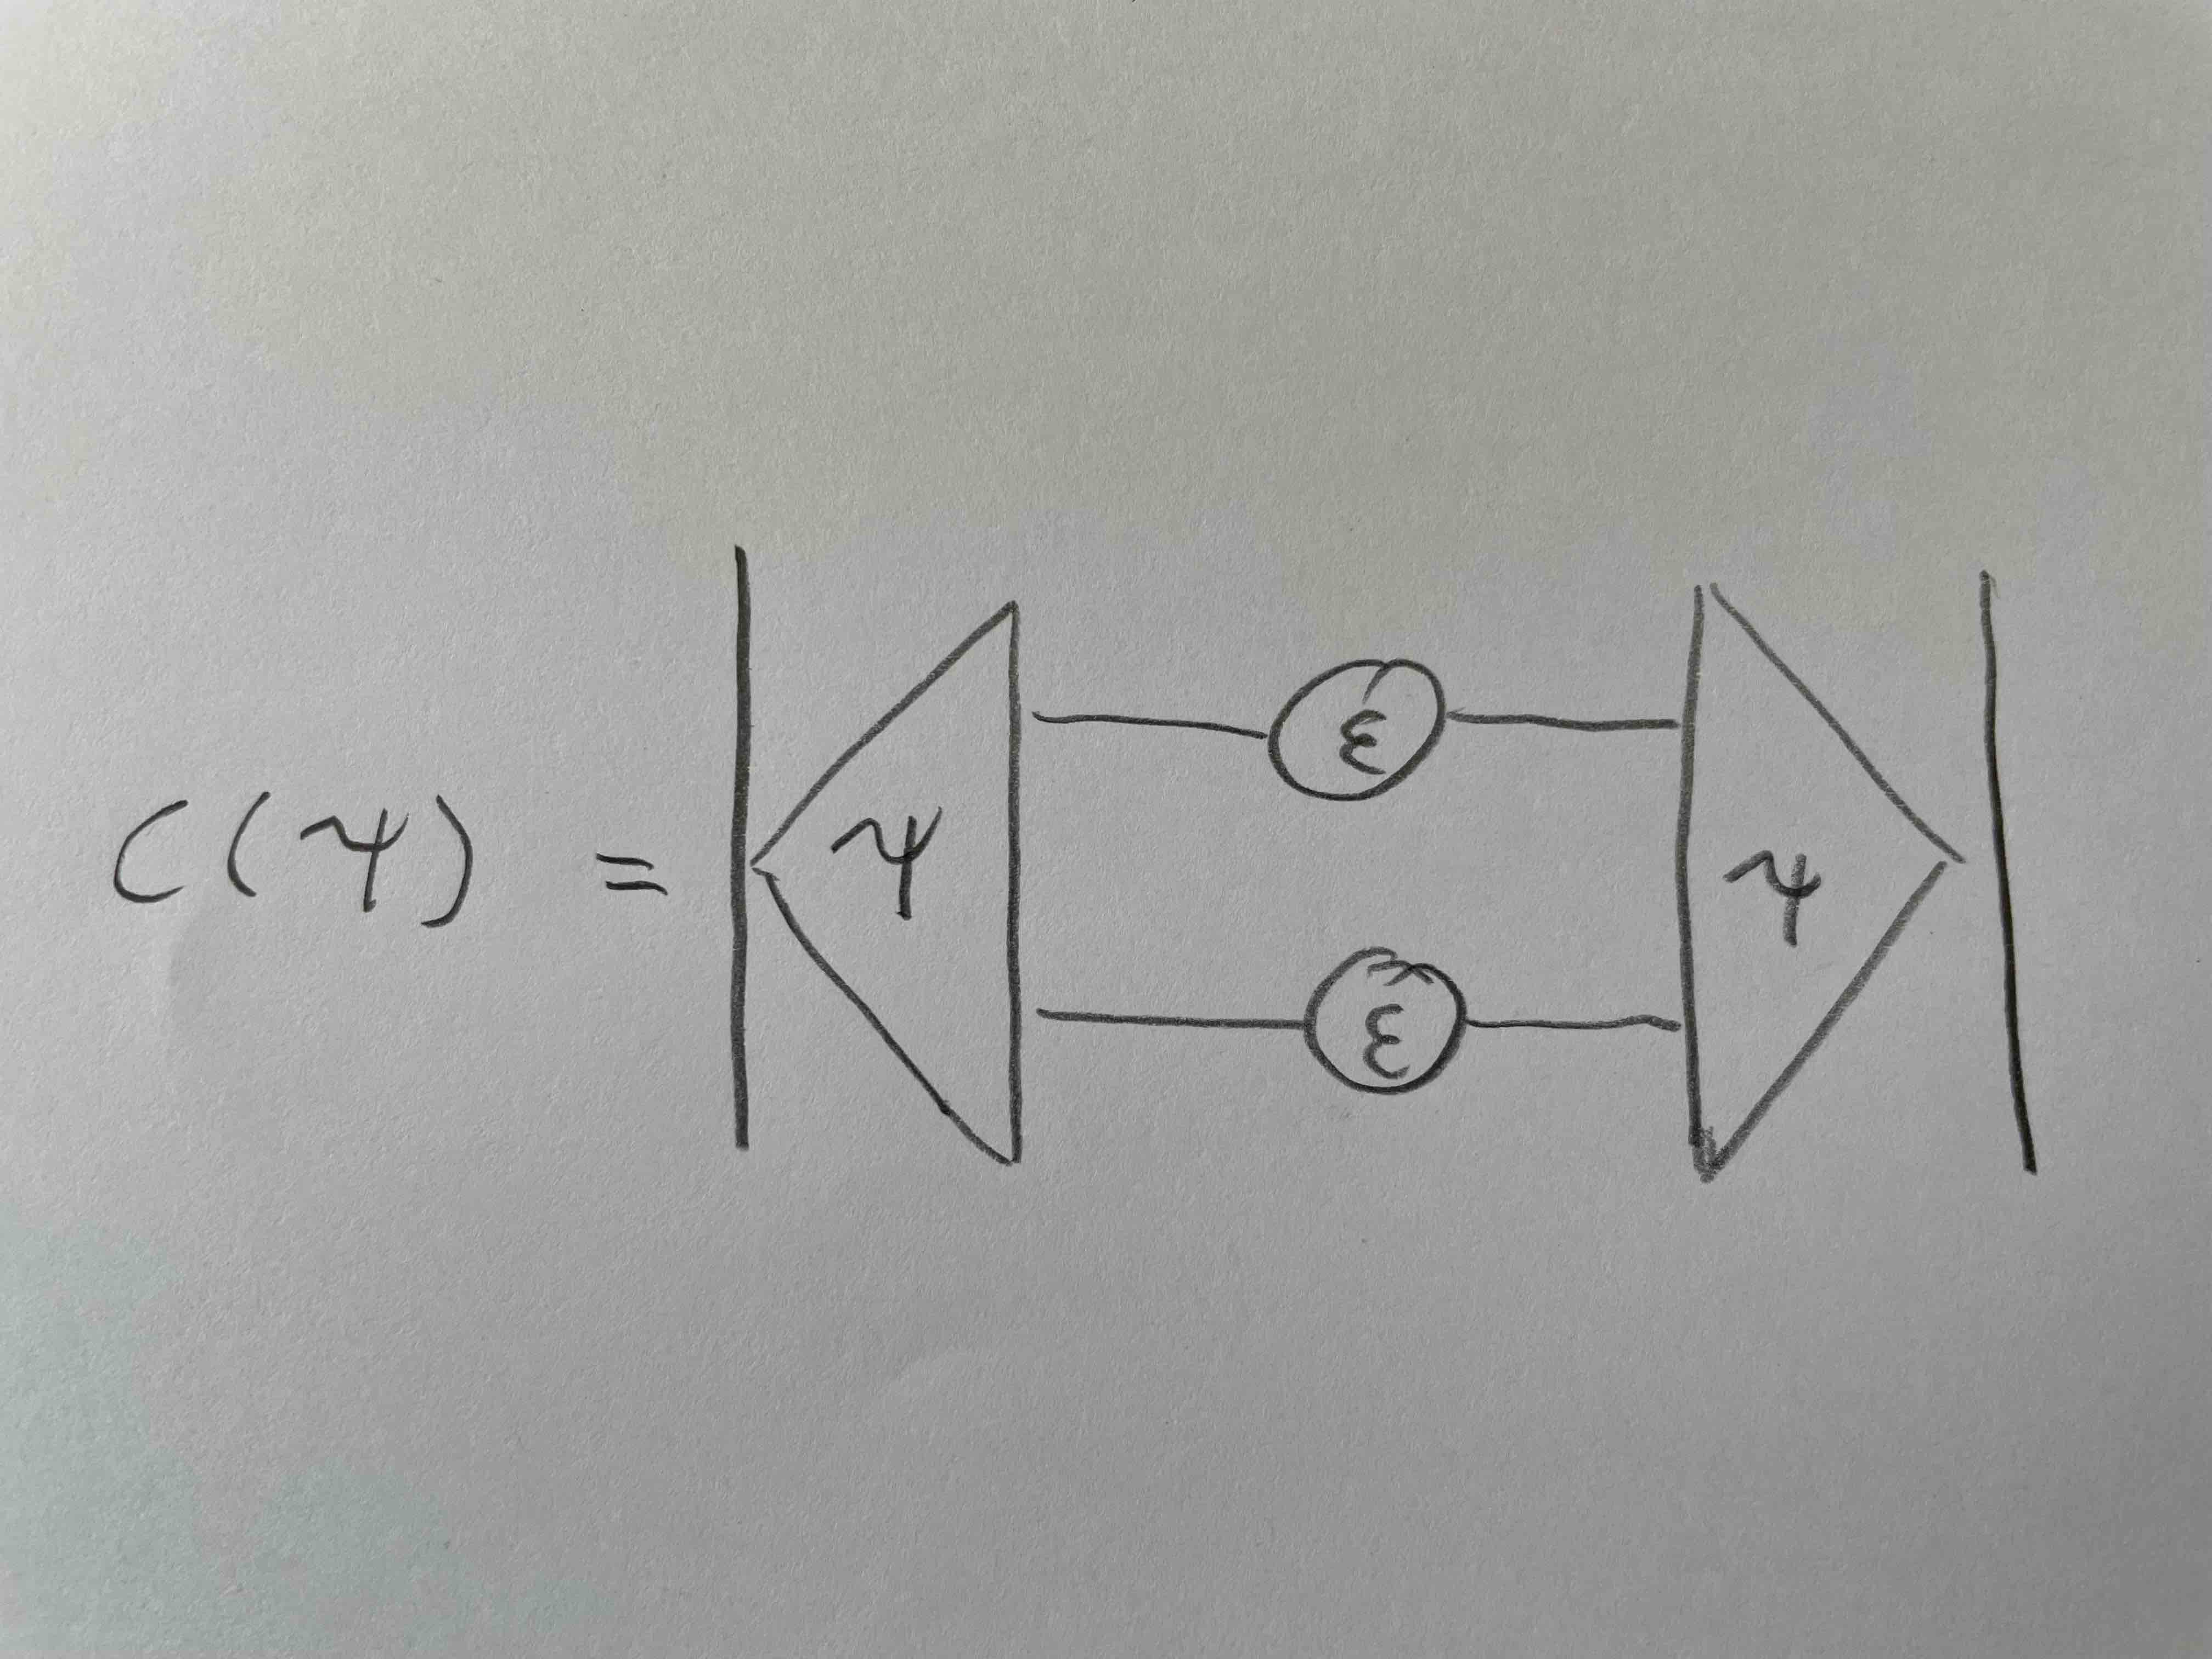 C(ψ) = | ψ ε ε ψ |